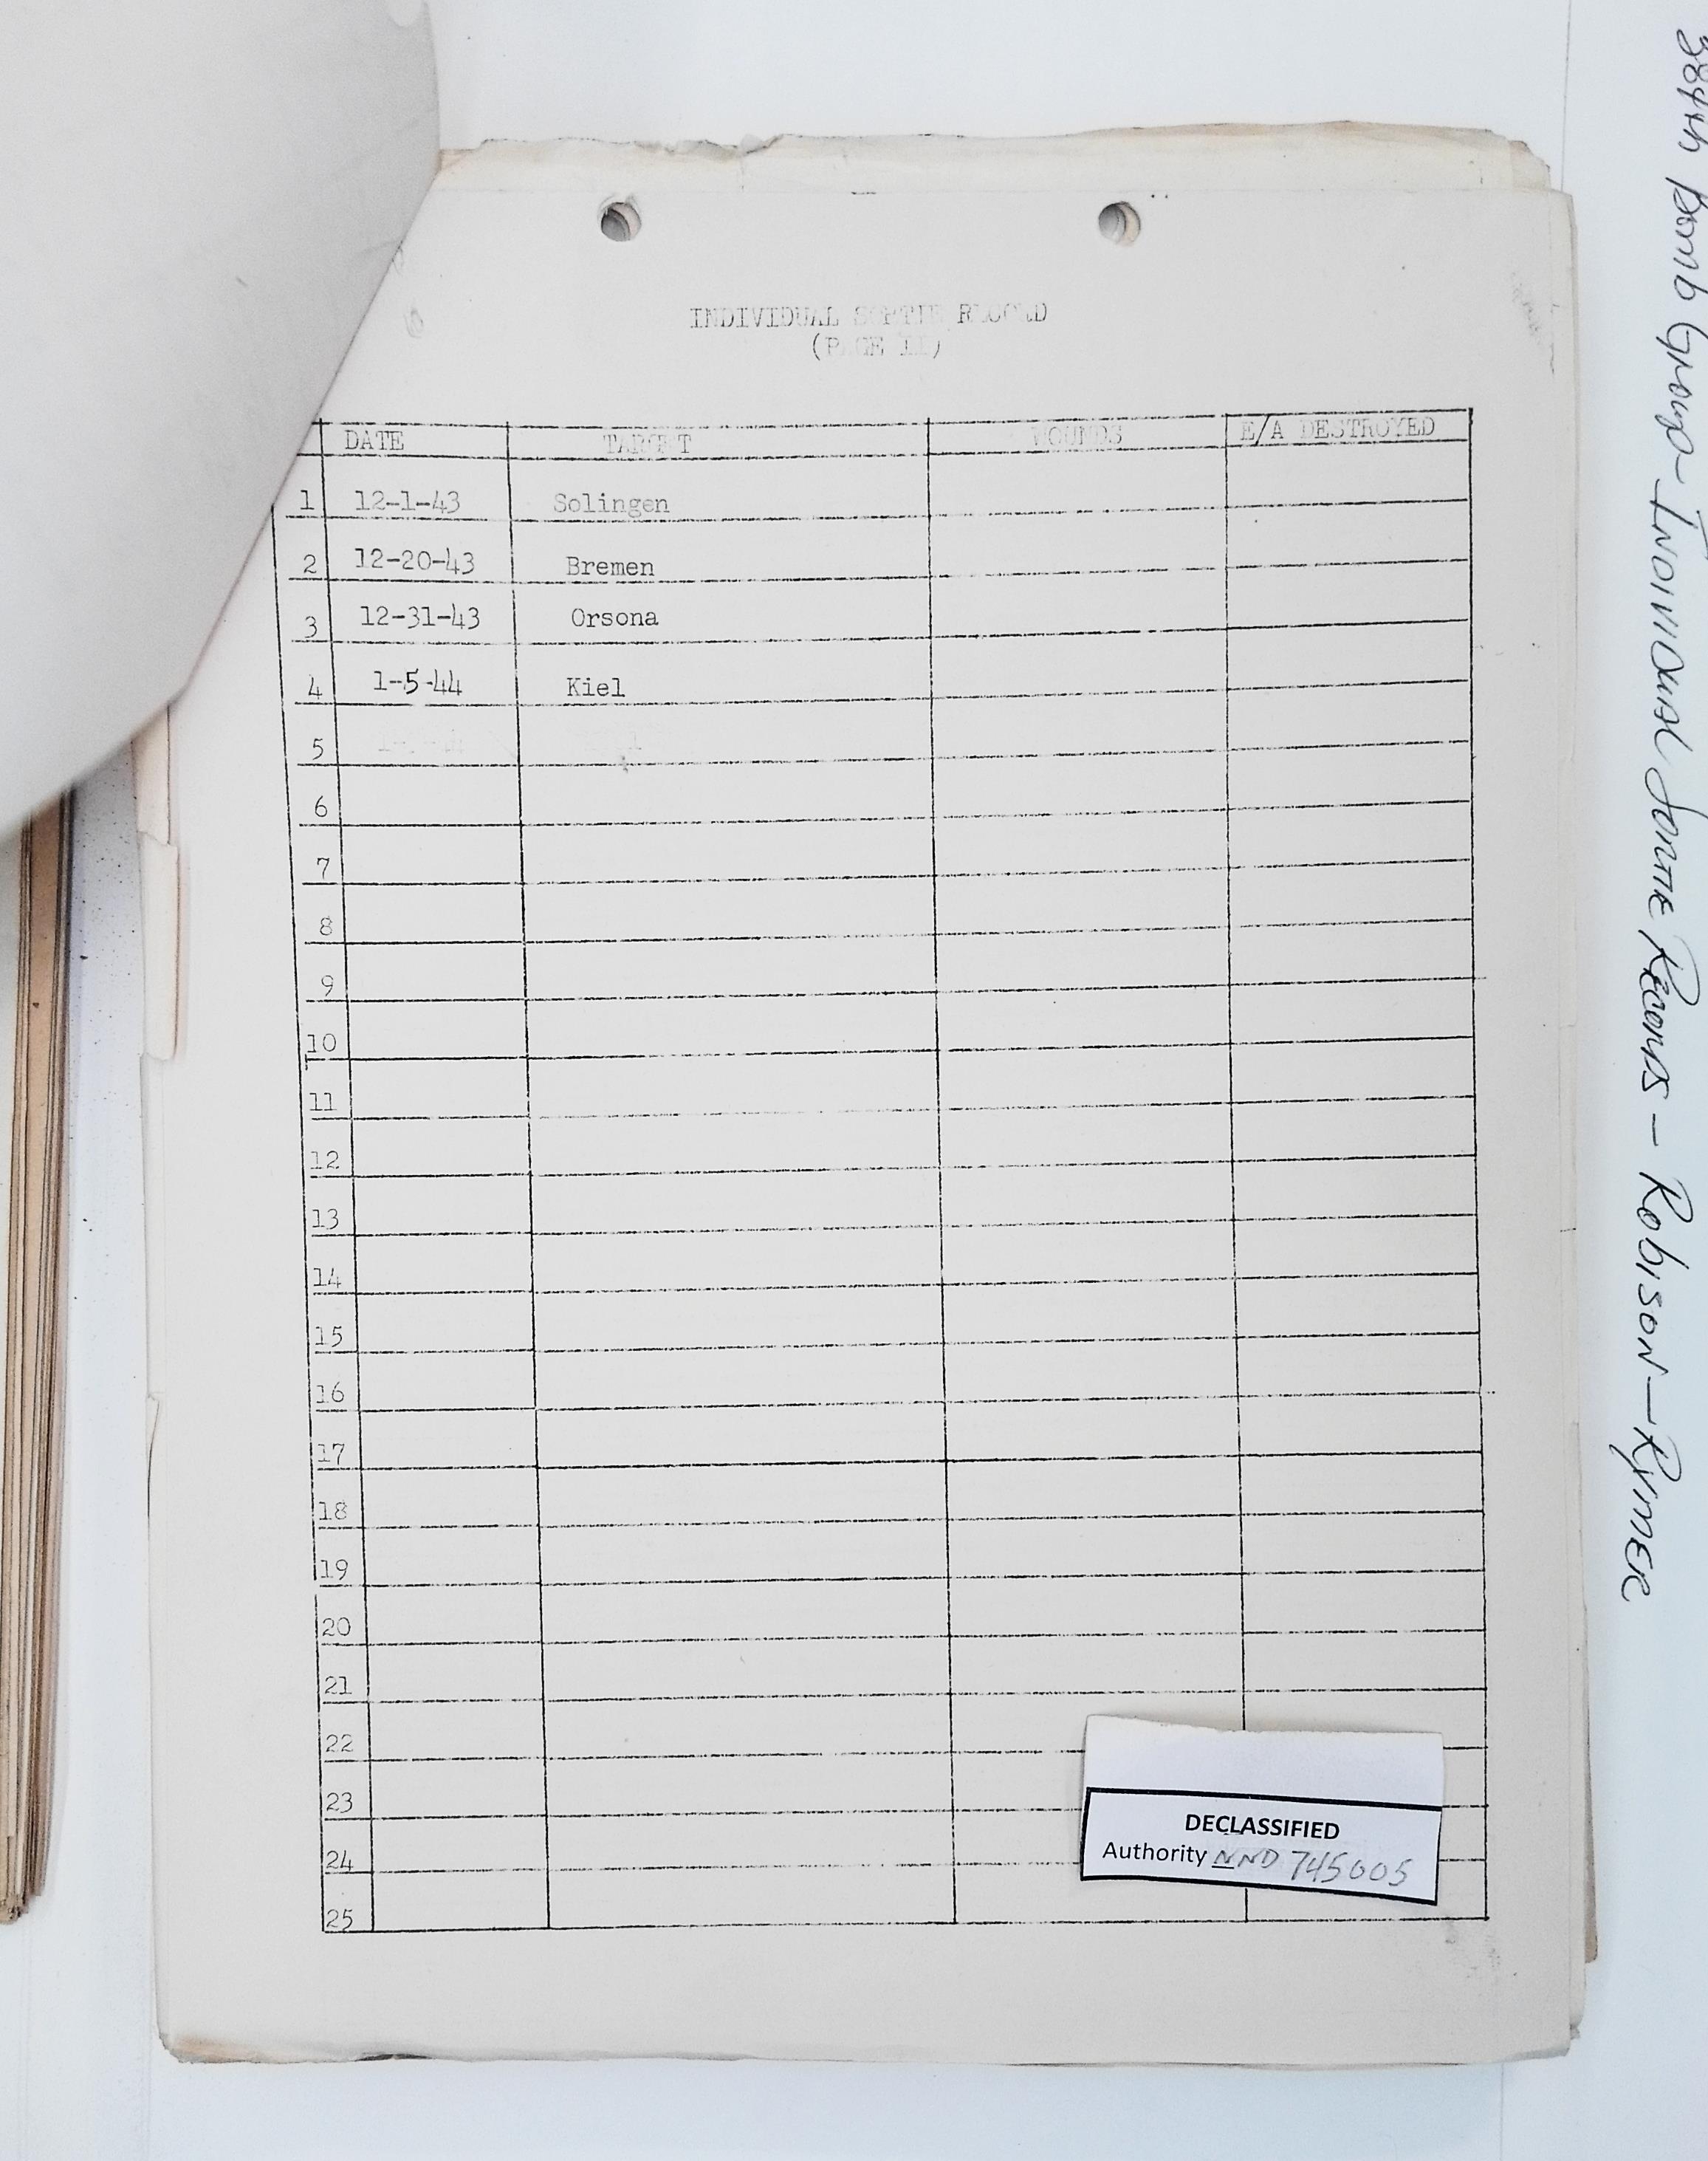 INDIVIDUAL SORTIE RECORD
(PAGE II)
DATE TARGET WOUNDS E/A DESTROYED
1 12-1-43 Solingen
2 12-20-43 Bremen
3 12-31-43 Orsona
4 1-5-44 Kiel
5
6
7
8
9
10
11
12
13
14
15
16
17
18
19
20
21
22
23
24
25
DECLASSIFIED
Authority NND 745005
384th Bomb Group - INDIVIDUAL SORTIE RECORDS - Robison - RYMER